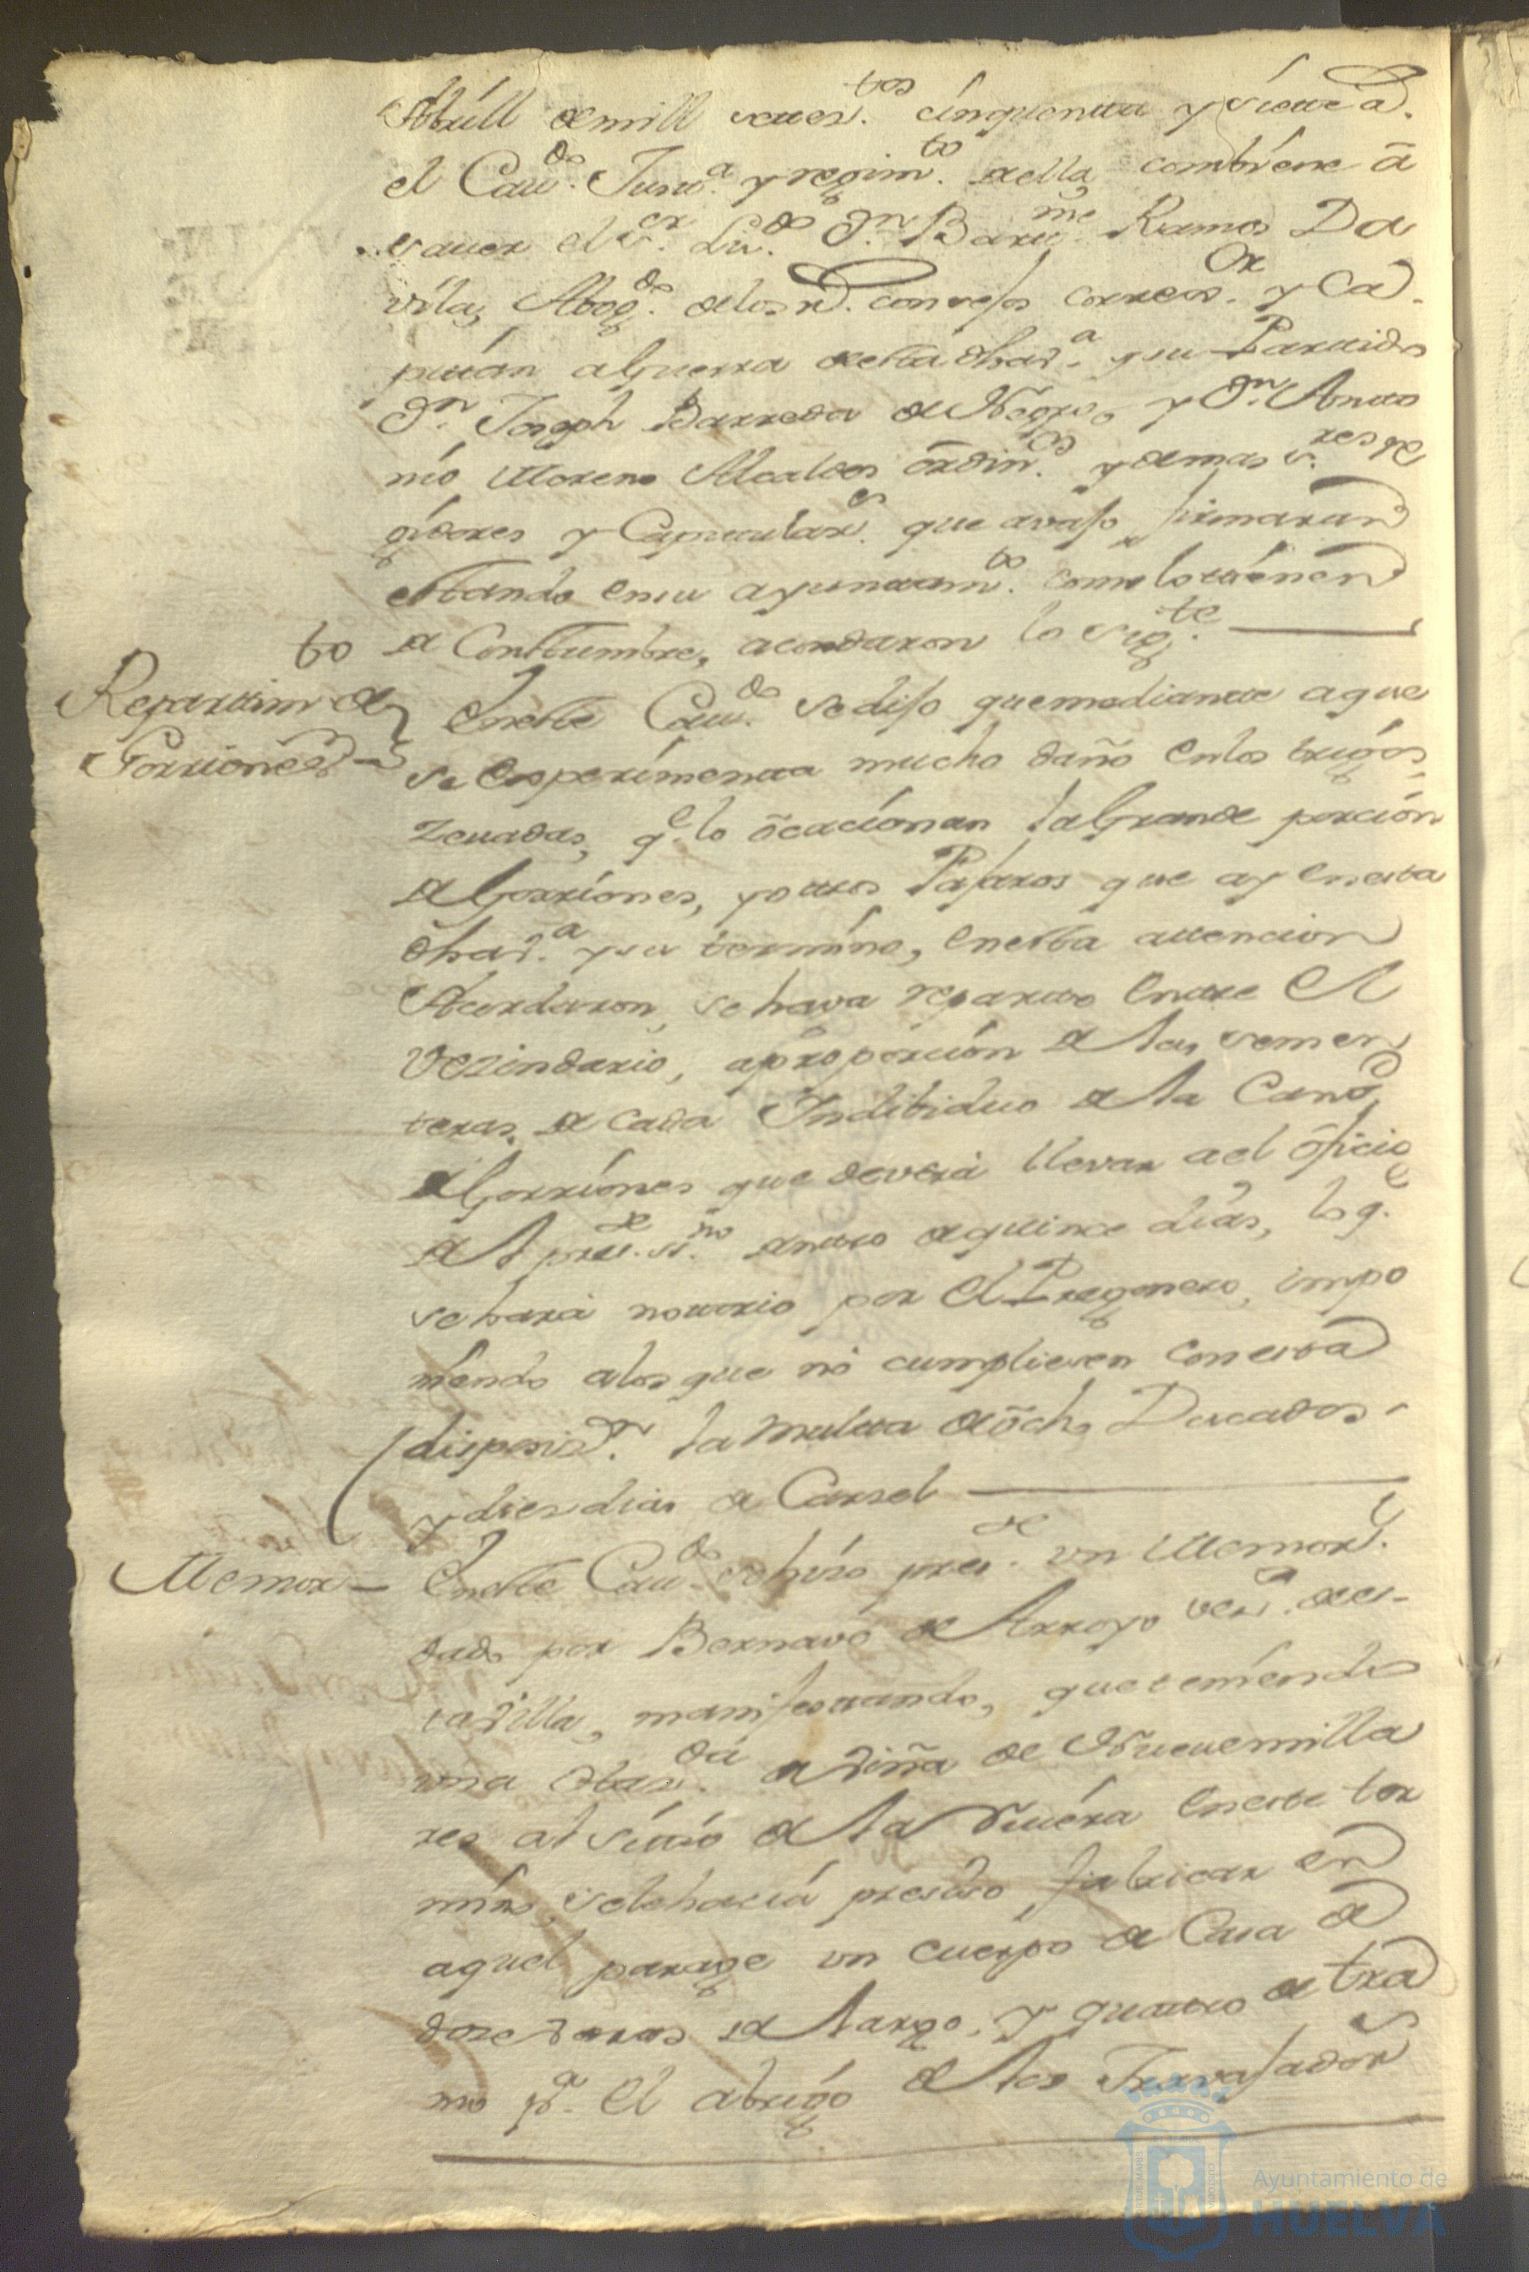 Abrill de mill setes.tos cinquentta y siette a.
el Cau.do Just.a y regim.to de ella combiene a
sauer el s.r Liz.do D.n Bartt.me Ramos Da
vila, Abog.do de los r.s consejos correx.or y Ca
pittan a Guerra de esta dha v.a y su Parttido
D.n Joseph Barreda de Negro, y D.n Antto
nio Moreno Alcaldes ordin.os y demas s.res Re
gidores y Capitular.s que avajo firmaran
estando en su ayuntam.to como lo tienen
de Conttumbre, acordaron lo sig.te
Reparttim.to de
Gorriones
En este Cau.do se dijo que mediantte a que
se esperimentta mucho daño en los trigos
Zeuadas, q.e lo ocacionan la Grande porcion
de Gorriones, y ottros Pajaros que ay en esta
dha v.a y su termino, en esta attencion
Acordaron, se haga repartto entre el
Vezindario, a proporcion de las semen
teras de cada Individuo de la Canttd.
de Gorriones que deverá llevar a el oficio
de el pres.te ss.no dentro de quince dias, lo q.e
se hará nottorio por el Pregonero, impo
niendo a los que no cumpliesen con esta
disposiz.n la multta de ocho Ducados
y dies dias de Carsel
Memor.
En este Cau.do se hizo pres.te un Memor.l
dado por Bernavé de Arroyo vez.o de es-
ta Villa, manifesttando, que teniendo
una Haz.da de Viña de Nueuemilla
res al sittio de la Riuera en este ter
mino, se le hacia preciso fabricar en
aquel parage un cuerpo de Casa de
doze varas de largo, y quattro de tra
mo p.a el abrigo de los Travajadores
Ayuntamiento de
HUELVA